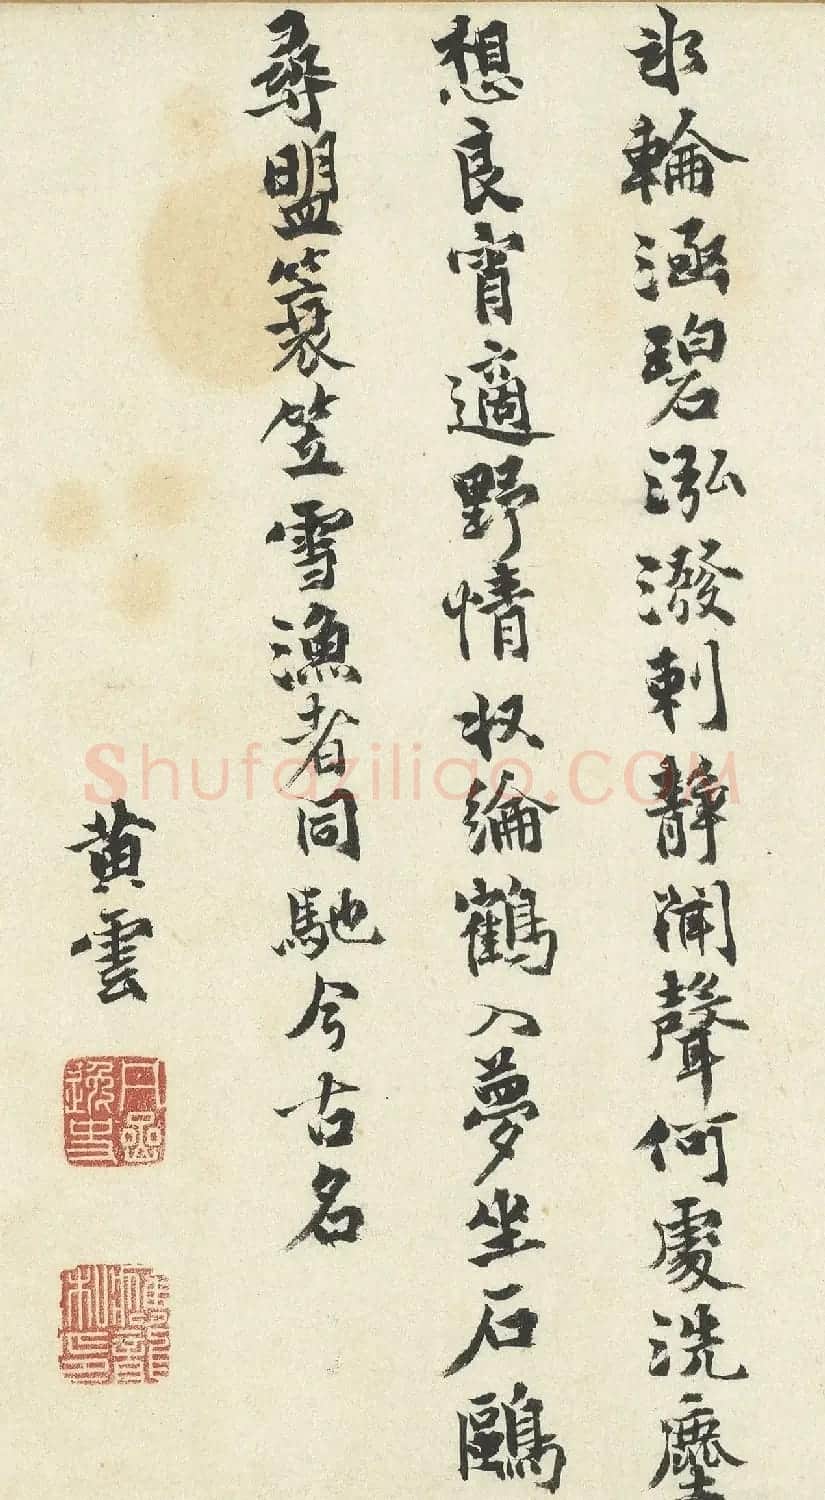 冰輪涵碧泓潑剌靜聞聲何處洗塵
想良宵適野情収綸鶴入夢坐石鷗
尋盟簑笠雪漁者同馳今古名
黄雲
Shufaziliao.COM